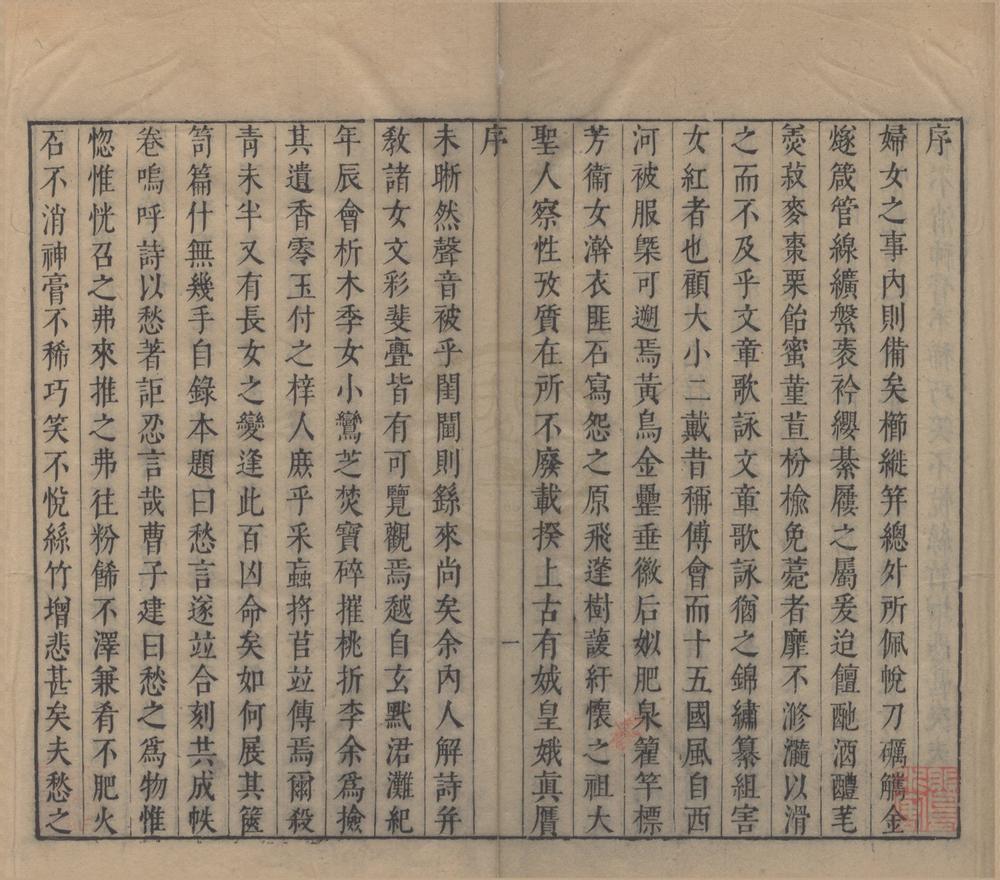 序
婦女之事內則備矣櫛縰笄總外所佩帨刀礪觿金
燧箴管線纊縏袠衿纓綦屨之屬爰迨饘酏酒醴芼
羹菽麥棗栗飴蜜堇荁枌榆免薧者靡不滫瀡以滑
之而不及乎文章歌詠文章歌詠猶之錦繡纂組害
女紅者也顧大小二戴昔稱傅會而十五國風自西
河被服槩可遡焉黃鳥金罍垂徽后姒肥泉籊竿標
芳衞女澣衣匪石寫怨之原飛蓬樹諼紆懷之祖大
聖人察性攷質在所不廢載揆上古有娀皇娥眞贋
序
一
未晰然聲音被乎閨閫則繇來尚矣余內人解詩幷
敎諸女文彩斐亹皆有可覽觀焉越自玄默涒灘紀
年辰會析木季女小鸞芝焚寶碎摧桃折李余爲撿
其遺香零玉付之梓人庶乎采蝱捋苢竝傳焉爾殺
靑未半又有長女之變逢此百凶命矣如何展其篋
笥篇什無幾手自錄本題曰愁言遂竝合刻共成帙
卷嗚呼詩以愁著詎忍言哉曹子建曰愁之爲物惟
惚惟恍召之弗來推之弗往粉餙不澤兼肴不肥火
石不消神膏不稀巧笑不悅絲竹增悲甚矣夫愁之